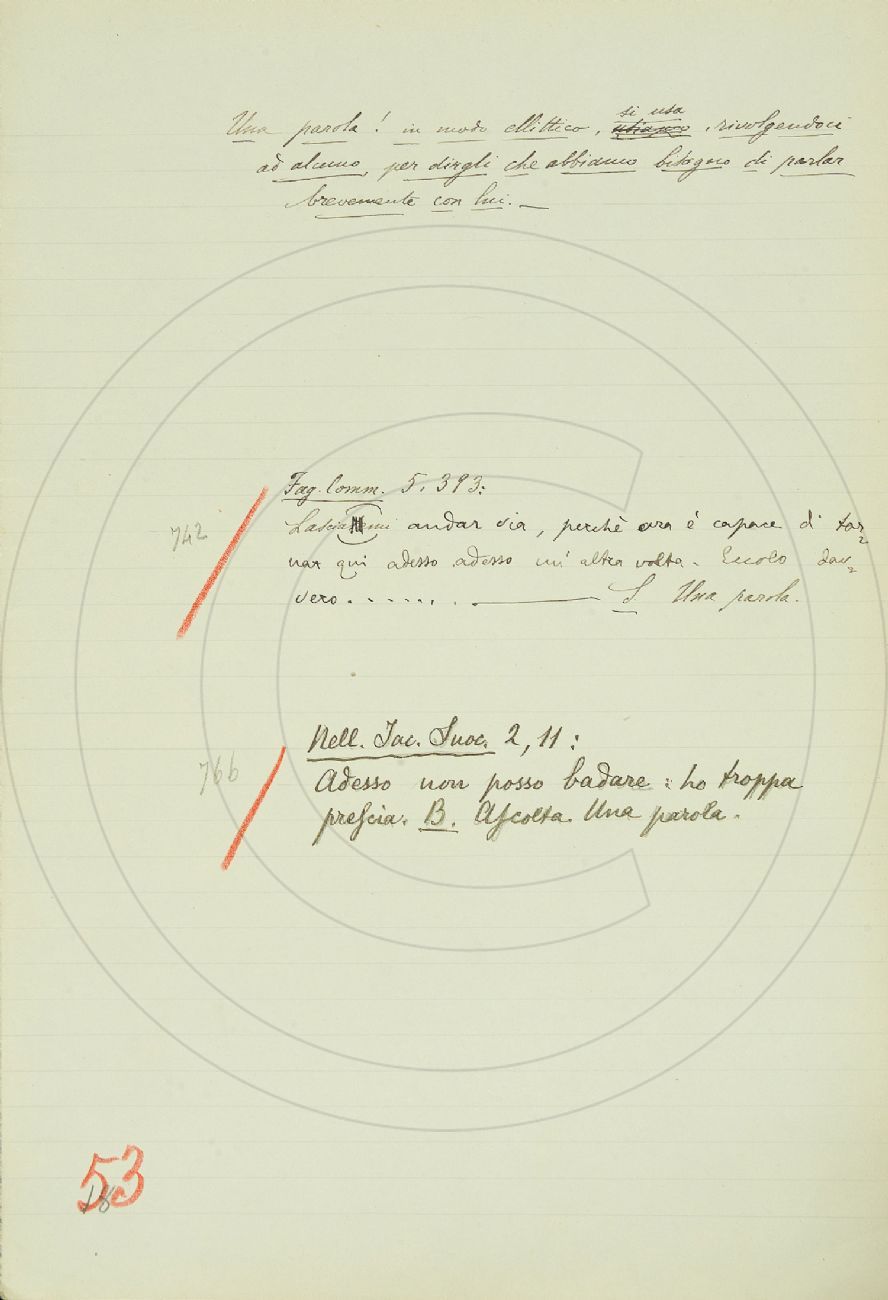 Una parola! in modo ellittico, si usa rivolgendoci
ad alcuno, per dirgli che abbiamo bisogno di parlar
brevemente con lui. —
Fag. Comm. 5. 393:
742
Lasciatemi andar via, perchè ora è capace di tor=
nar qui adesso adesso un' altra volta. Eccolo dav=
vero. . . . . . . ——— S Una parola.
Nell. Iac. Suoc. 2, 11:
766
Adesso non posso badare: ho troppa
prescia. B. Ascolta. Una parola.
53
18